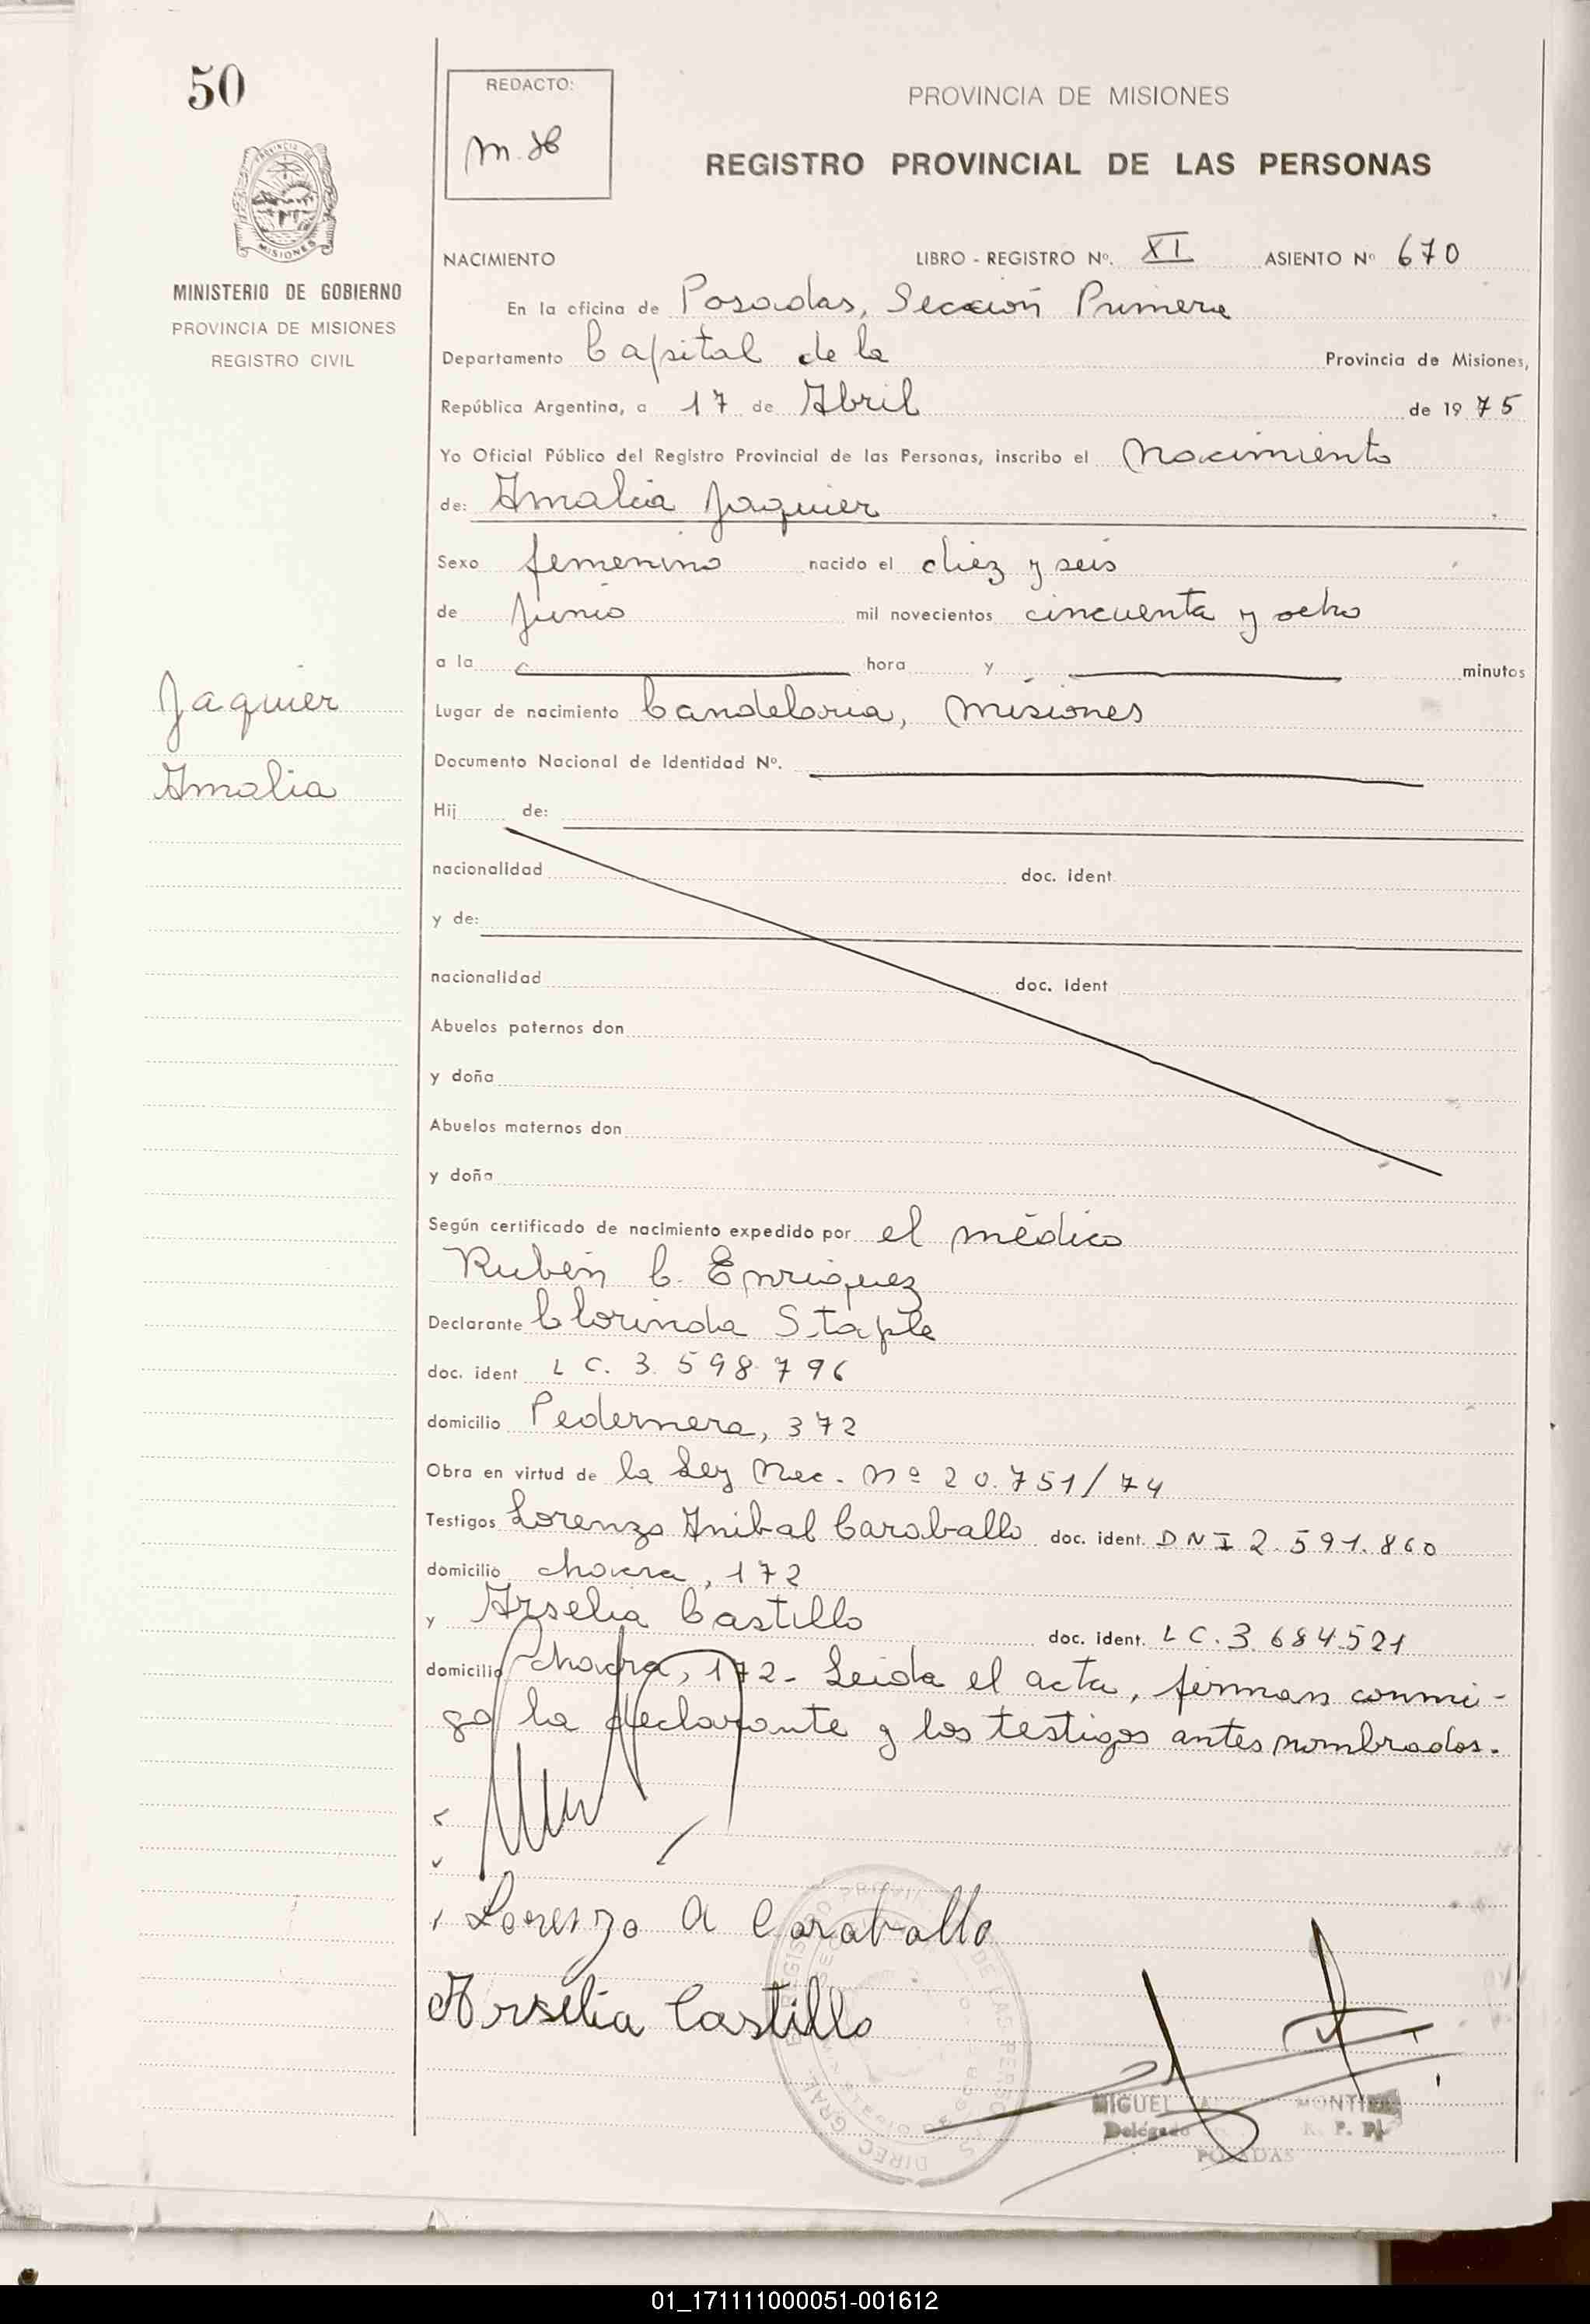 50
REDACTO:
M. H
PROVINCIA DE MISIONES
REGISTRO PROVINCIAL DE LAS PERSONAS
MISIONES
MINISTERIO DE GOBIERNO
PROVINCIA DE MISIONES
REGISTRO CIVIL
NACIMIENTO LIBRO - REGISTRO Nº. XI ASIENTO Nº 670
En la oficina de Posadas, Sección Primera
Departamento Capital de la Provincia de Misiones,
República Argentina, a 17 de Abril de 1975
Yo Oficial Público del Registro Provincial de las Personas, inscribo el Nacimiento
de: Amalia Jaquier
Sexo femenino nacido el diez y seis
de Junio mil novecientos cincuenta y ocho
a la hora y minutos
Jaquier
Amalia
Lugar de nacimiento Candelaria, Misiones
Documento Nacional de Identidad Nº.
Hij de:
nacionalidad doc. ident.
y de:
nacionalidad doc. ident
Abuelos paternos don
y doña
Abuelos maternos don
y doña
Según certificado de nacimiento expedido por el médico
Rubén C. Enriquez
Declarante Clorinda Staple
doc. ident L C. 3.598.796
domicilio Pedernera, 372
Obra en virtud de la Ley Nac. Nº 20.751/74
Testigos Lorenzo Anibal Caraballo doc. ident. DNI 2.591.860
domicilio chacra, 172
y Arselia Castillo doc. ident. L C. 3.684.521
domicilio Chacra, 172- Leida el acta, firman conmi-
go la declarante y los testigos antes nombrados.
Lorenzo A Caraballo
Arselia Castillo
MIGUEL
Delegado
POSADAS
01_171111000051-001612